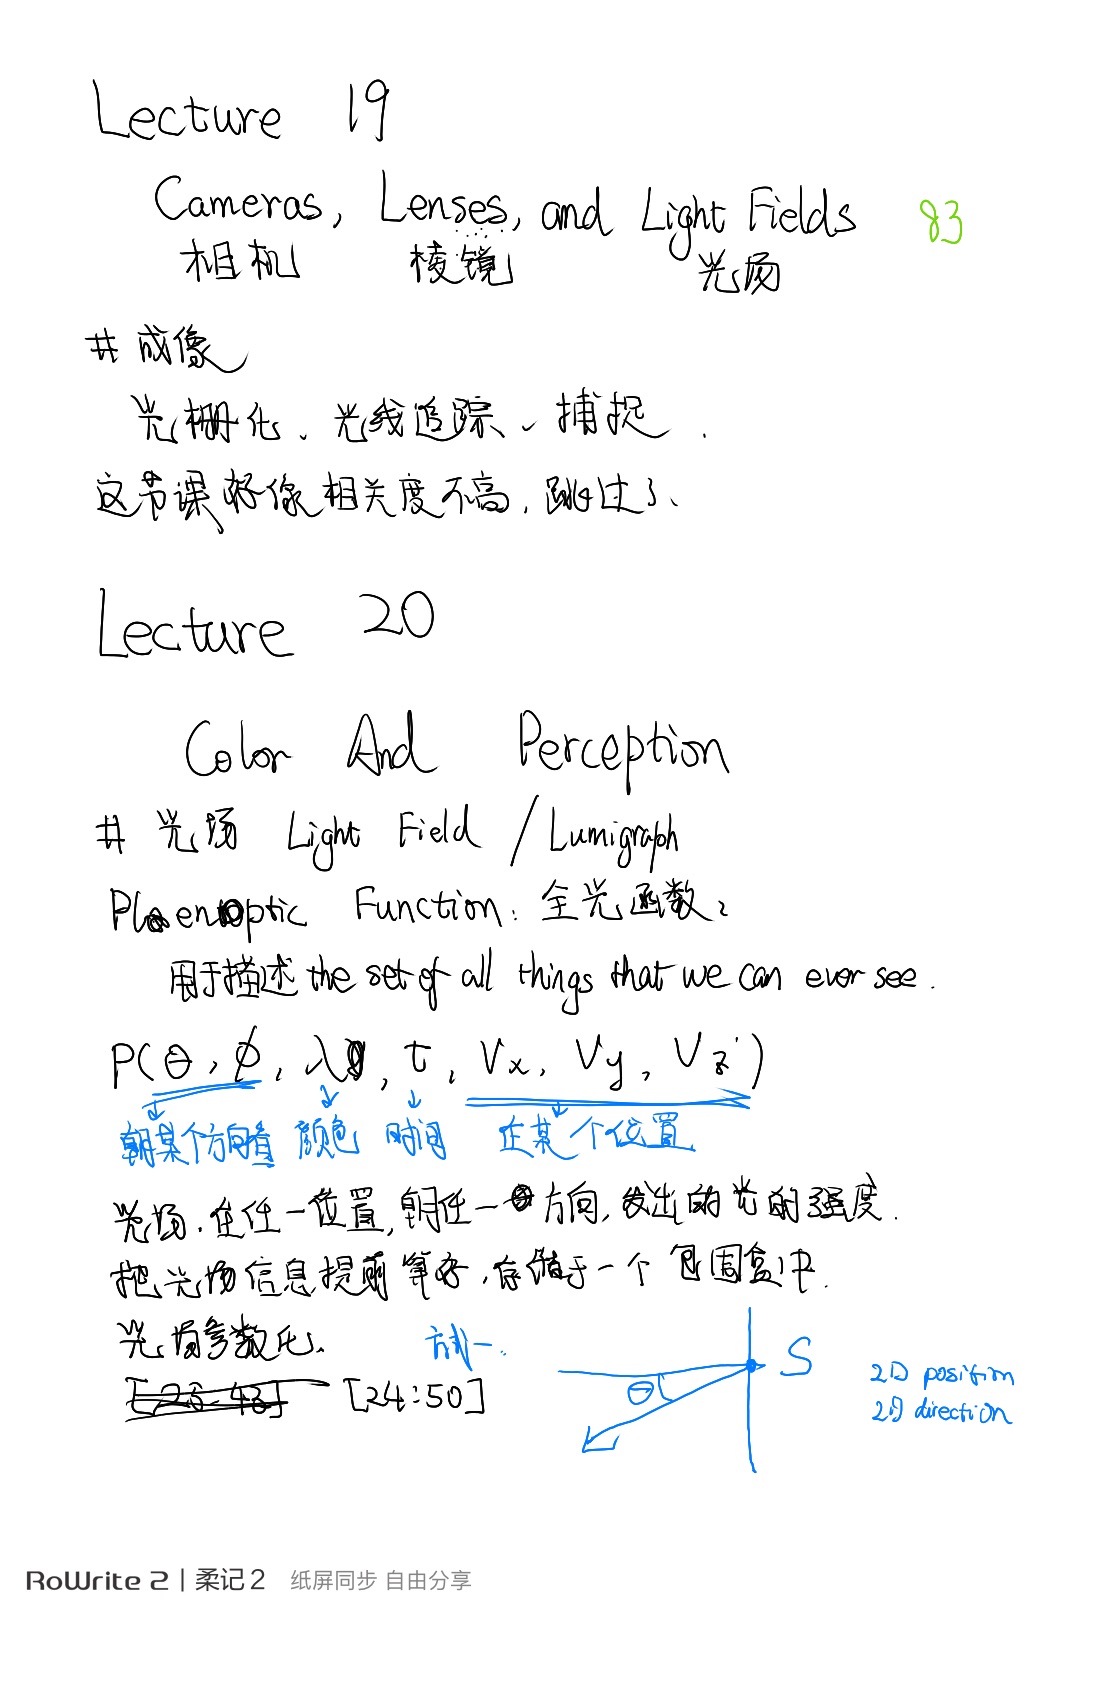 Lecture 19
Cameras, Lenses, and Light Fields 83
相机 棱镜 光场
# 成像
光栅化、光线追踪、捕捉.
这节课好像相关度不高,跳过了、
Lecture 20
Color And Perception
# 光场 Light Field / Lumigraph
Plenoptic Function: 全光函数,
用于描述 the set of all things that we can ever see.
P(θ, ϕ, λ, t, Vx, Vy, Vz)
朝某个方向看 颜色 时间 在某个位置
光场.在任一位置,朝任一方向,发出的光的强度.
把光场信息提前算好,存储于一个包围盒中.
光场参数化、 方式一:
S
θ
2D position
2D direction
[24:50]
RoWrite 2 | 柔记2 纸屏同步 自由分享